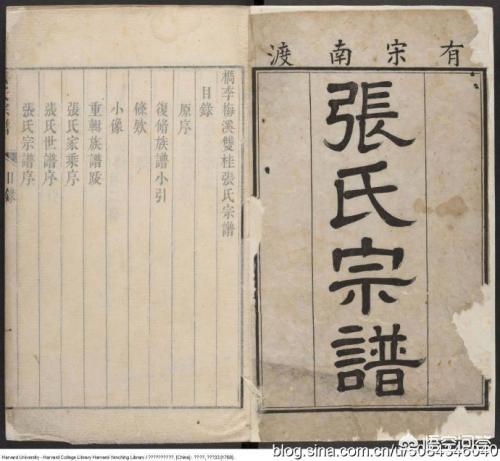 有宋南渡
張氏宗譜
檇李梅溪雙桂張氏宗譜
目錄
原序
復脩族譜小引
條欵
小像
重輯族譜跋
張氏家乘序
張氏世譜序
張氏宗譜序
氏宗譜 目錄
Harvard University - Harvard College Library Harvard-Yenching Library / ??????????. [China] : ????, ??33 [1768].
blog.sina.com.cn/u/5064346640
悟空问答